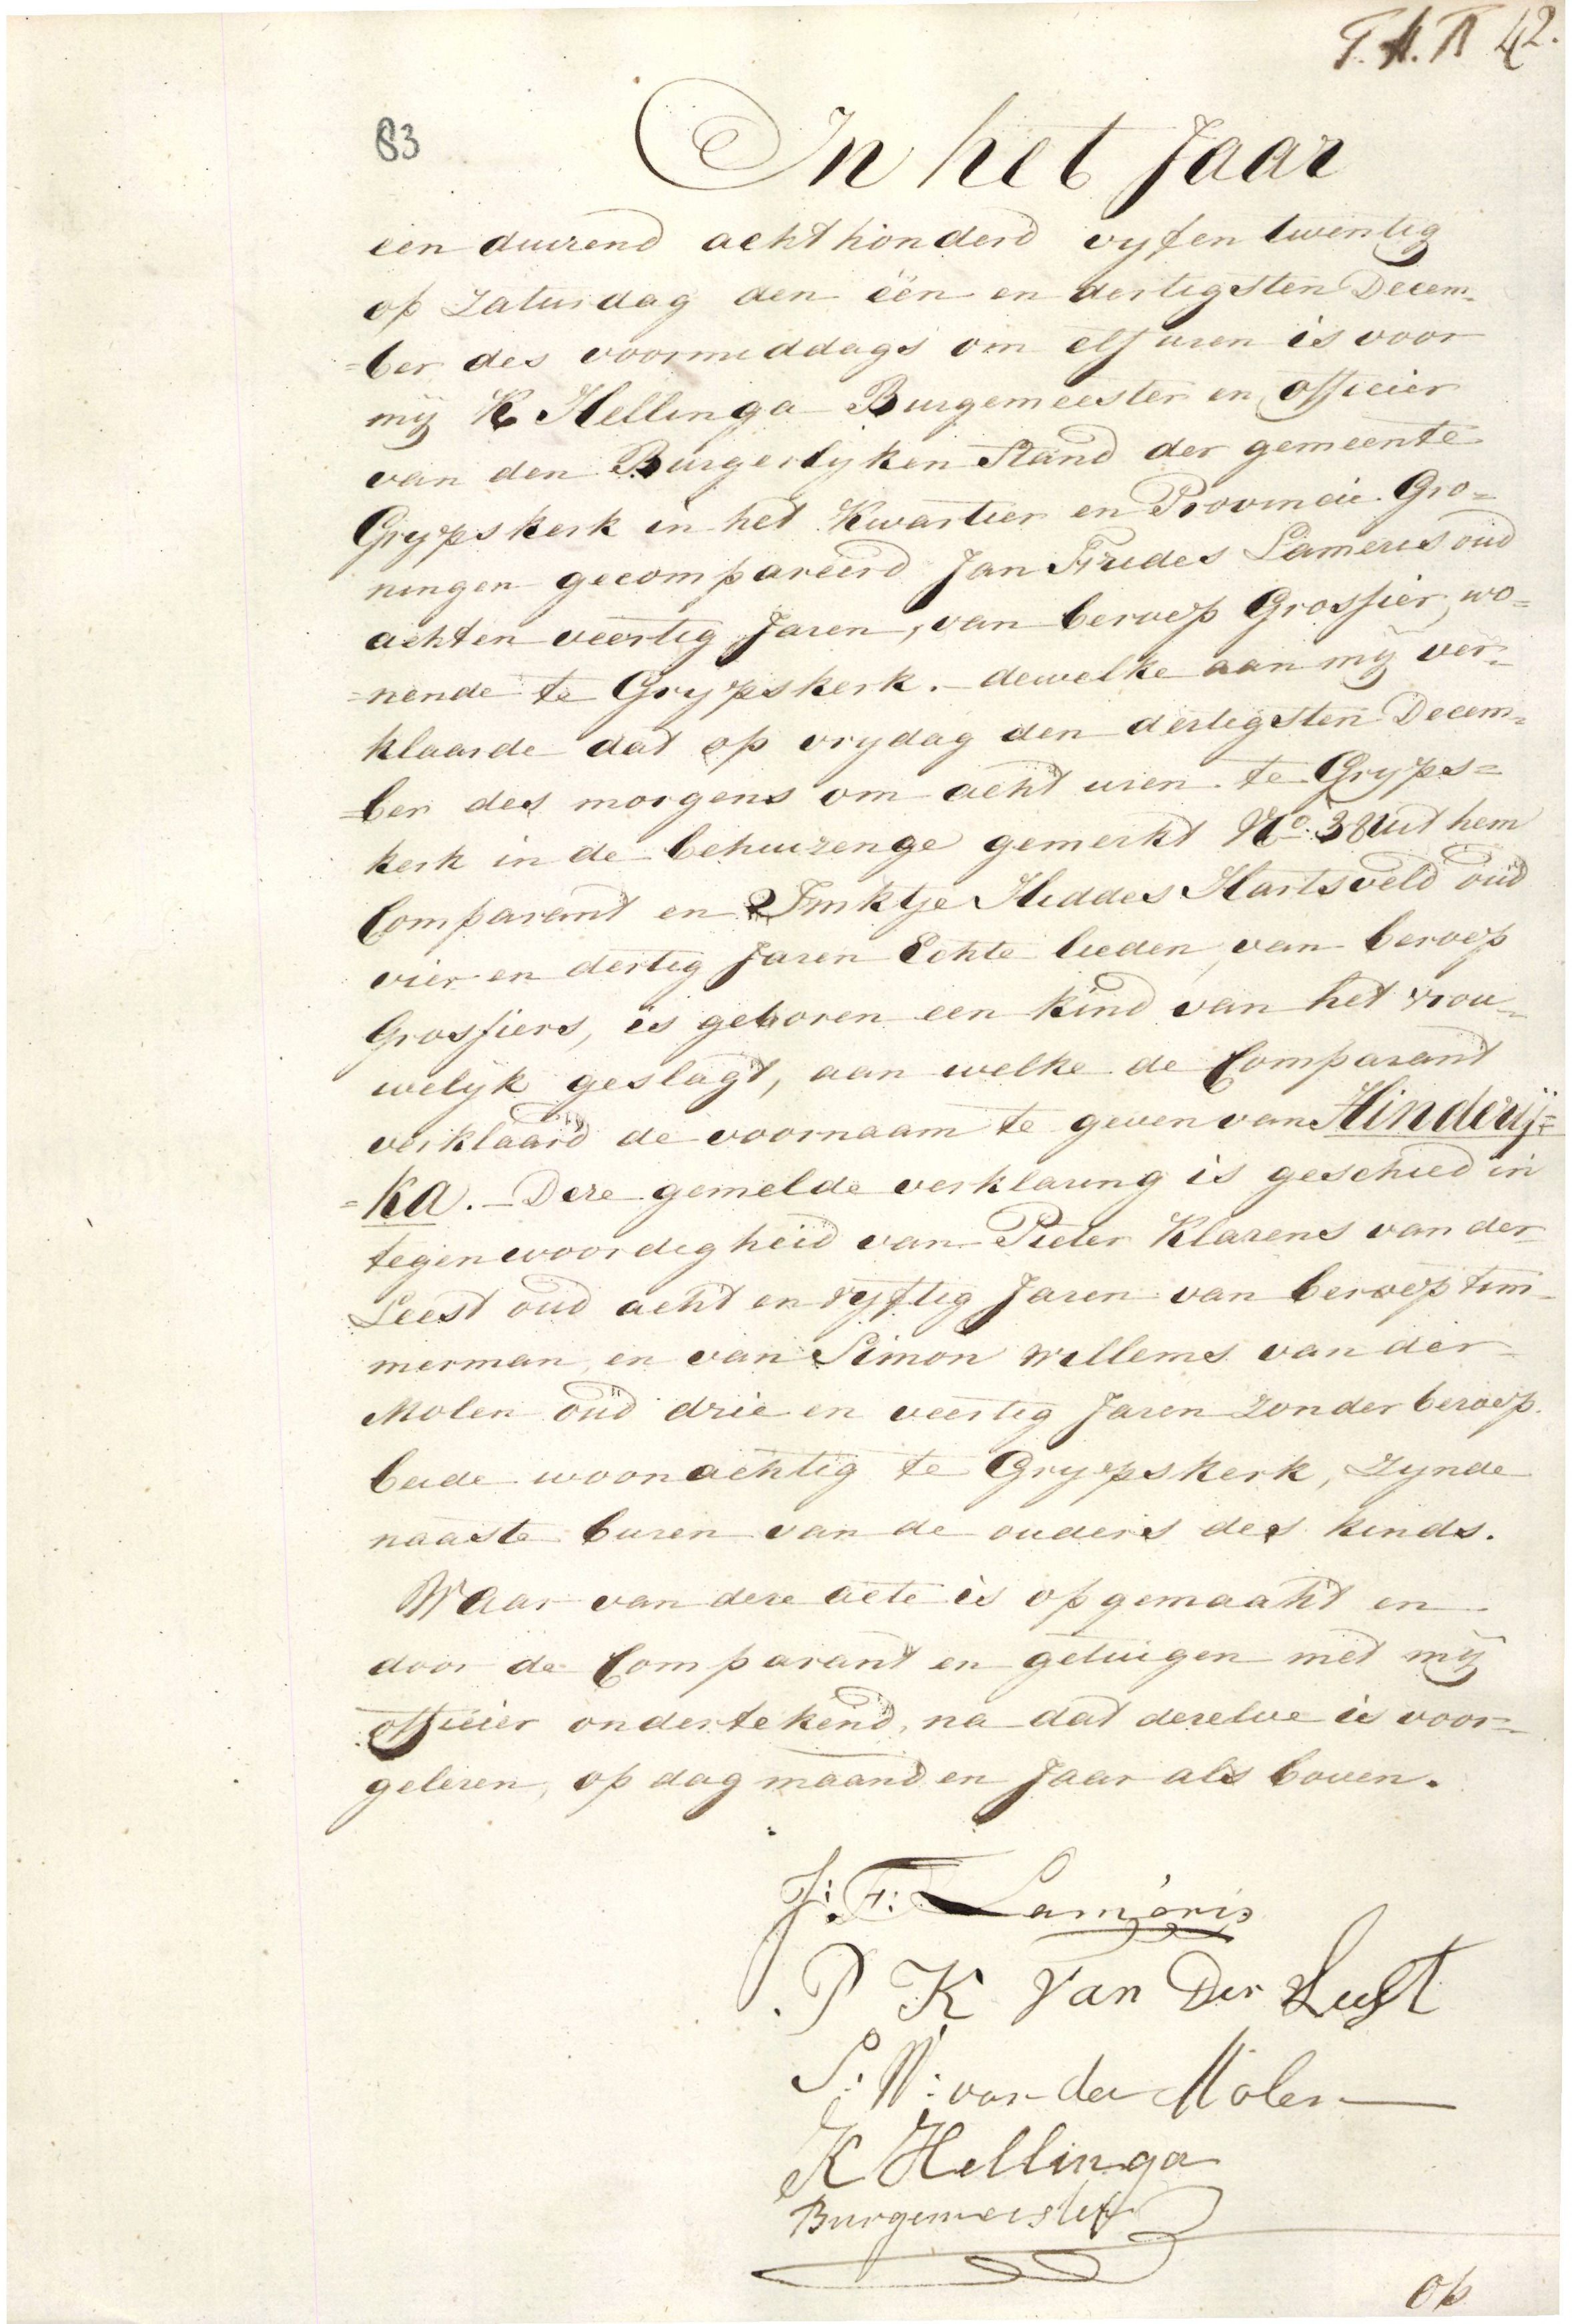 42.
83
In het Jaar
een duizend acht honderd vyf en twentig
op Zaturdag den één en dertigsten Decem-
=ber des voormiddags om elf uren is voor
mij K Hellinga Burgemeester en Officier
van den Burgerlyken Stand der gemeente
Grypskerk in het Kwartier en Provincie Gro=
ningen gecompareerd Jan Friedes Lameris oud
acht en veertig Jaren, van beroep Grossier, wo=
=nende te Grypskerk. dewelke aan mij ver=
klaarde dat op vrydag den dertigsten Decem=
=ber des morgens om acht uren te Gryps=
kerk in de behuizenge gemerkt No. 38 uit hem
Comparant en Imktje Heddes Hartsveld oud
vier en dertig Jaren Echte lieden, van beroep
Grossiers, is geboren een kind van het vrou=
welyk geslagt, aan welke de Comparant
verklaard de voornaam te geven van Hinderij=
=ka. Deze gemelde verklaring is geschied in
tegenwoordigheid van Pieter Klazens van der
Leest oud acht en vyftig Jaren van beroep tim-
merman, en van Simon Willems van der
Molen oud drie en veertig Jaren zonder beroep.
beide woonachtig te Grypskerk, zynde
naaste buren van de ouders des kinds.
Waar van deze acte is opgemaakt en
door de Comparant en getuigen met mij
officier ondertekend, na dat dezelve is voor=
gelezen, op dag maand en Jaar als boven.
J: F: Lameris
P K Van Der Leest
S: W: van der Molen
K Hellinga
Burgemeester
Op